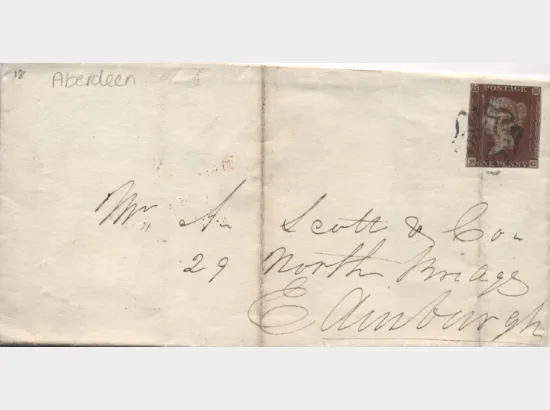 18
Aberdeen
POSTAGE
ONE PENNY
Mr A. Scott & Co.
29 North Bridge
Edinburgh